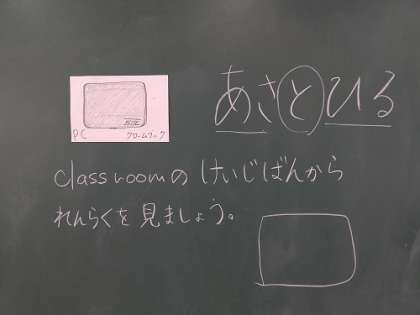 あさとひる
PC
クロームブック
classroomの けいじばんから
れんらくを見ましょう。